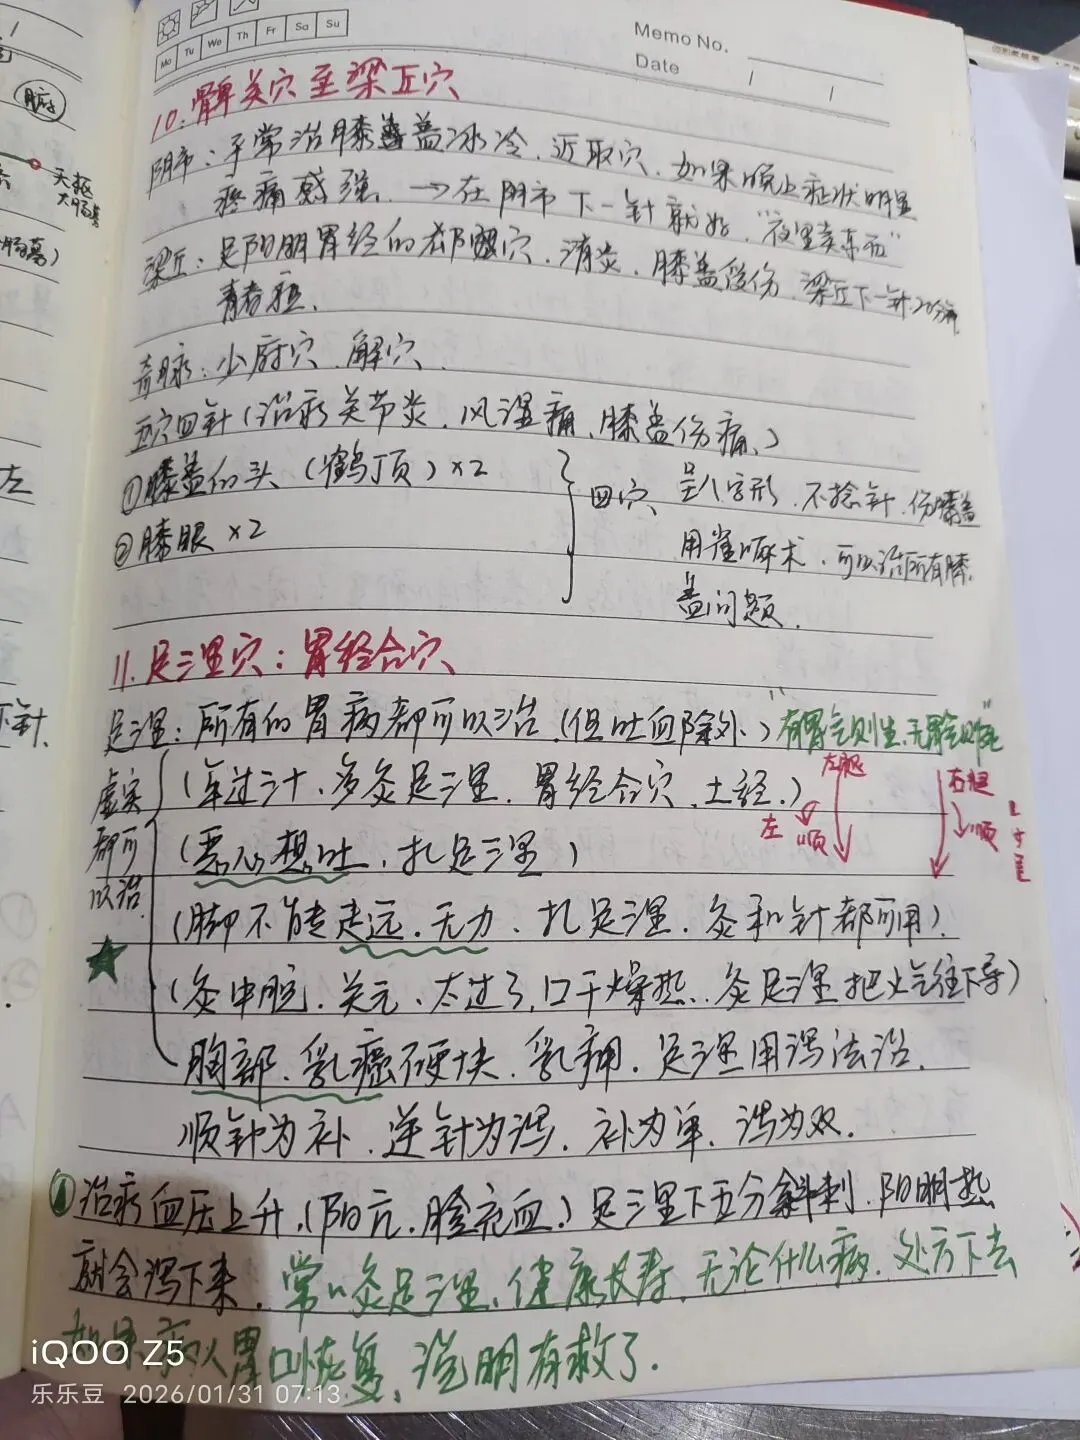 Mo Tu We Th Fr Sa Su
Memo No.
Date / /
腑
天枢
大肠募
10. 髀关穴至梁丘穴
阴市：平常治膝盖冰冷、近取穴、如果晚上症状明显
疼痛感强、→在阴市下一针就好、"夜里卖东西"
梁丘：足阳明胃经的郄穴、消炎、膝盖受伤、梁丘下一针20分钟
奇脉：少府穴、解穴、
五穴四针（治疗关节炎、风湿痛、膝盖伤痛、）
①膝盖的头（鹤顶）×2
四穴 呈八字形、不捻针、伤膝盖
②膝眼×2
用雀啄术、可以治所有膝
盖问题、
11. 足三里穴：胃经合穴
足三里：所有的胃病都可以治、（但吐血除外、）"有胃气则生、无胃气则死"
虚实都可以治、
（年过三十、多灸足三里、胃经合穴、土经、）
左腿 左 顺
右腿 顺
（恶心想吐、扎足三里）
（脚不能走远、无力、扎足三里、灸和针都可用）、
（灸中脘、关元、太过了、口干燥热、灸足三里把火气往下导）
胸部、乳癌硬块、乳痈、足三里用泻法治、
顺针为补、逆针为泻、补为单、泻为双、
①治疗血压上升、（阳亢、脸充血）足三里下五分斜刺、阳明热
就会泻下来、常灸足三里、健康长寿、无论什么病、处方下去
如果病人胃口恢复、说明有救了.
iQOO Z5
乐乐豆 2026/01/31 07:13